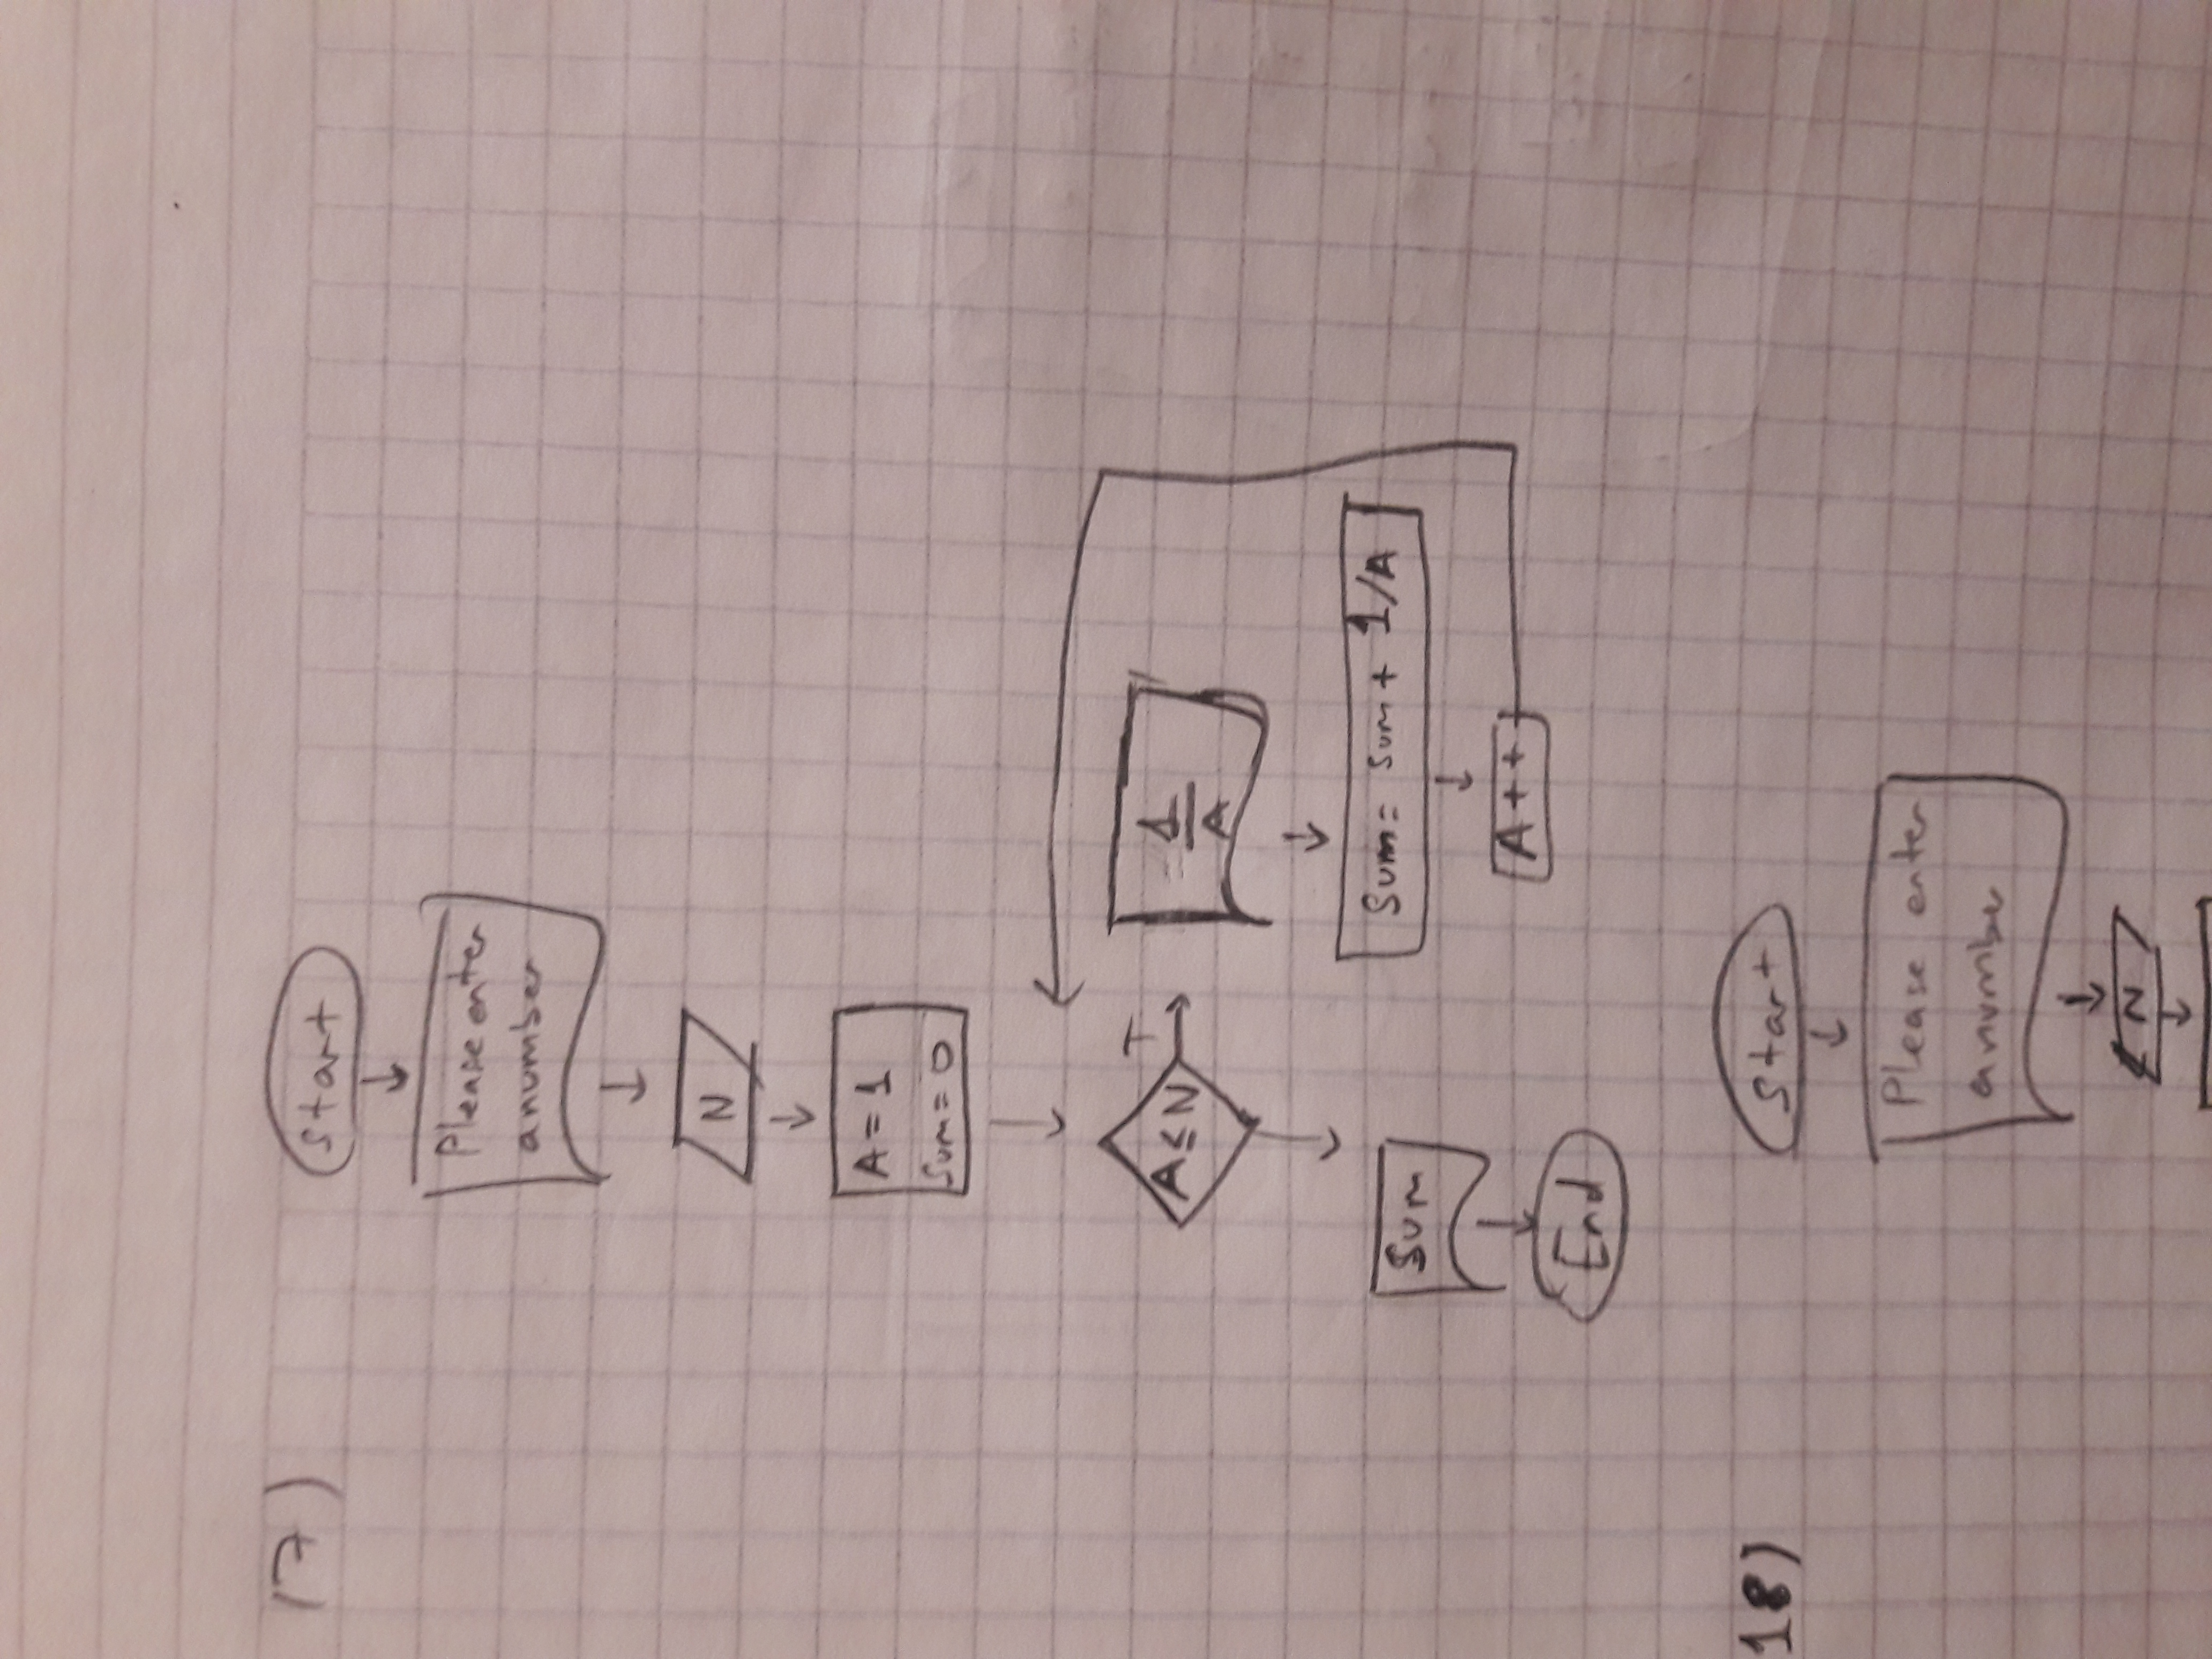 17)
start
Please enter
a number
N
A = 1
Sum = 0
A ≤ N
T
1
A
Sum = Sum + 1/A
A++
Sum
End
18)
start
Please enter
a number
N